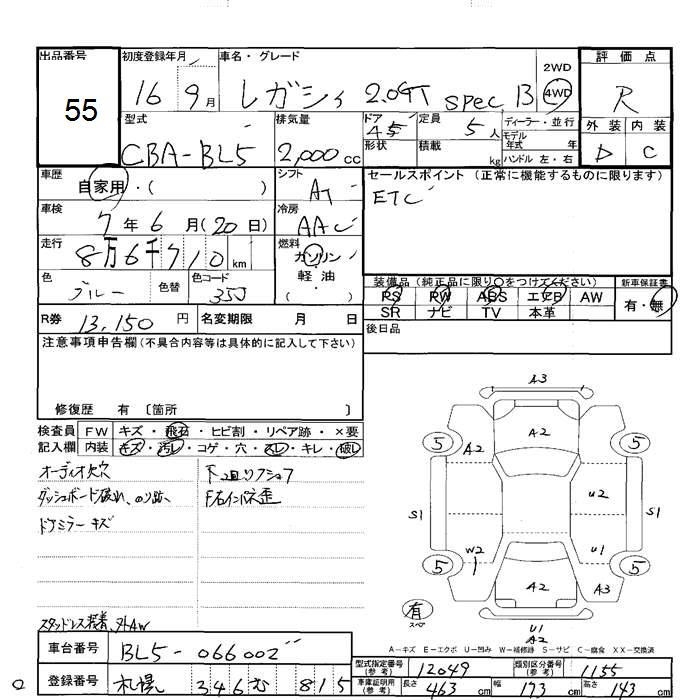 出品番号 初度登録年月 車名・グレード 2WD 評価点
55 16 9月 レガシィ 2.0GT spec B 4WD R
型式 排気量 ドア 45 定員 5人 ディーラー・並行 外装 内装
CBA-BL5 2,000cc 形状 積載 kg モデル年式 年 D C
ハンドル 左・右
車歴 自家用・( ) シフト AT セールスポイント (正常に機能するものに限ります)
車検 7年6月(20日) 冷房 AAC ETC
走行 8万6千710km 燃料 ガソリン・軽油・( )
色 ブルー 色替 色コード 35J 装備品 (純正品に限り○をつけてください) 新車保証書
PS PW ABS エアB AW 有・無
SR ナビ TV 本革
R券 13,150円 名変期限 月 日 後日品
注意事項申告欄(不具合内容等は具体的に記入して下さい)
修復歴 有 〔箇所 〕
検査員 FW キズ・飛石・ヒビ割・リペア跡・×要
記入欄 内装 キズ・汚レ・コゲ・穴・スレ・キレ・破レ
オーディオ欠 下廻リ
ダッシュボード破れ、のり跡、
ドアミラーキズ
スタッドレス装着、
A3
A2
5 A2 5
U2
S1 S1
W2 U1
5 1 5
A2 A3
有
スペア
U1
A2
A-キズ E-エクボ U-凹み W-補修跡 S-サビ C-腐食 XX-交換済
車台番号 BL5-066002
型式指定番号(参考) 12049 類別区分番号(参考) 1155
登録番号 札幌 346 む 815
車庫証明用(参考) 長さ 463cm 幅 173cm 高さ 143cm